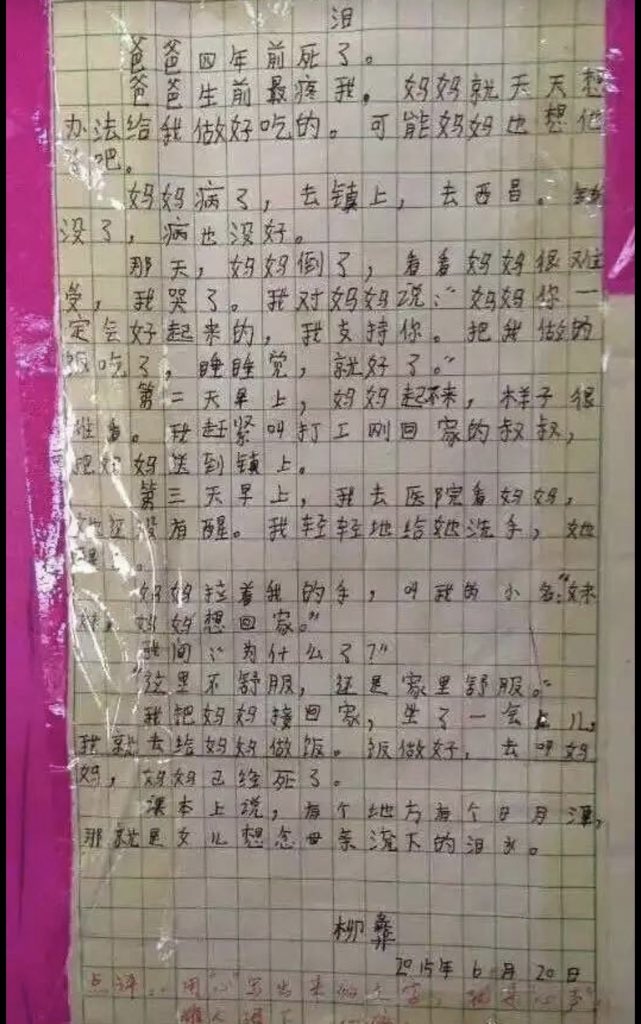 泪
爸爸四年前死了。
爸爸生前最疼我，妈妈就天天想
办法给我做好吃的。可能妈妈也想他
了吧。
妈妈病了，去镇上，去西昌。钱
没了，病也没好。
那天，妈妈倒了，看看妈妈很难
受，我哭了。我对妈妈说：“妈妈你一
定会好起来的，我支持你。把我做的
饭吃了，睡睡觉，就好了。”
第二天早上，妈妈起不来，样子很
难看。我赶紧叫打工刚回家的叔叔，
把妈妈送到镇上。
第三天早上，我去医院看妈妈，
她还没有醒。我轻轻地给她洗手，她
醒了。
妈妈拉着我的手，叫我的小名：“妹
妹，妈妈想回家。”
我问：“为什么了？”
“这里不舒服，还是家里舒服。”
我把妈妈接回家，坐了一会儿，
我就去给妈妈做饭。饭做好，去叫妈
妈，妈妈已经死了。
课本上说，有个地方有个日月潭，
那就是女儿想念母亲流下的泪水。
柳彝
2015年6月20日
点评：用“心”写出来的文字，